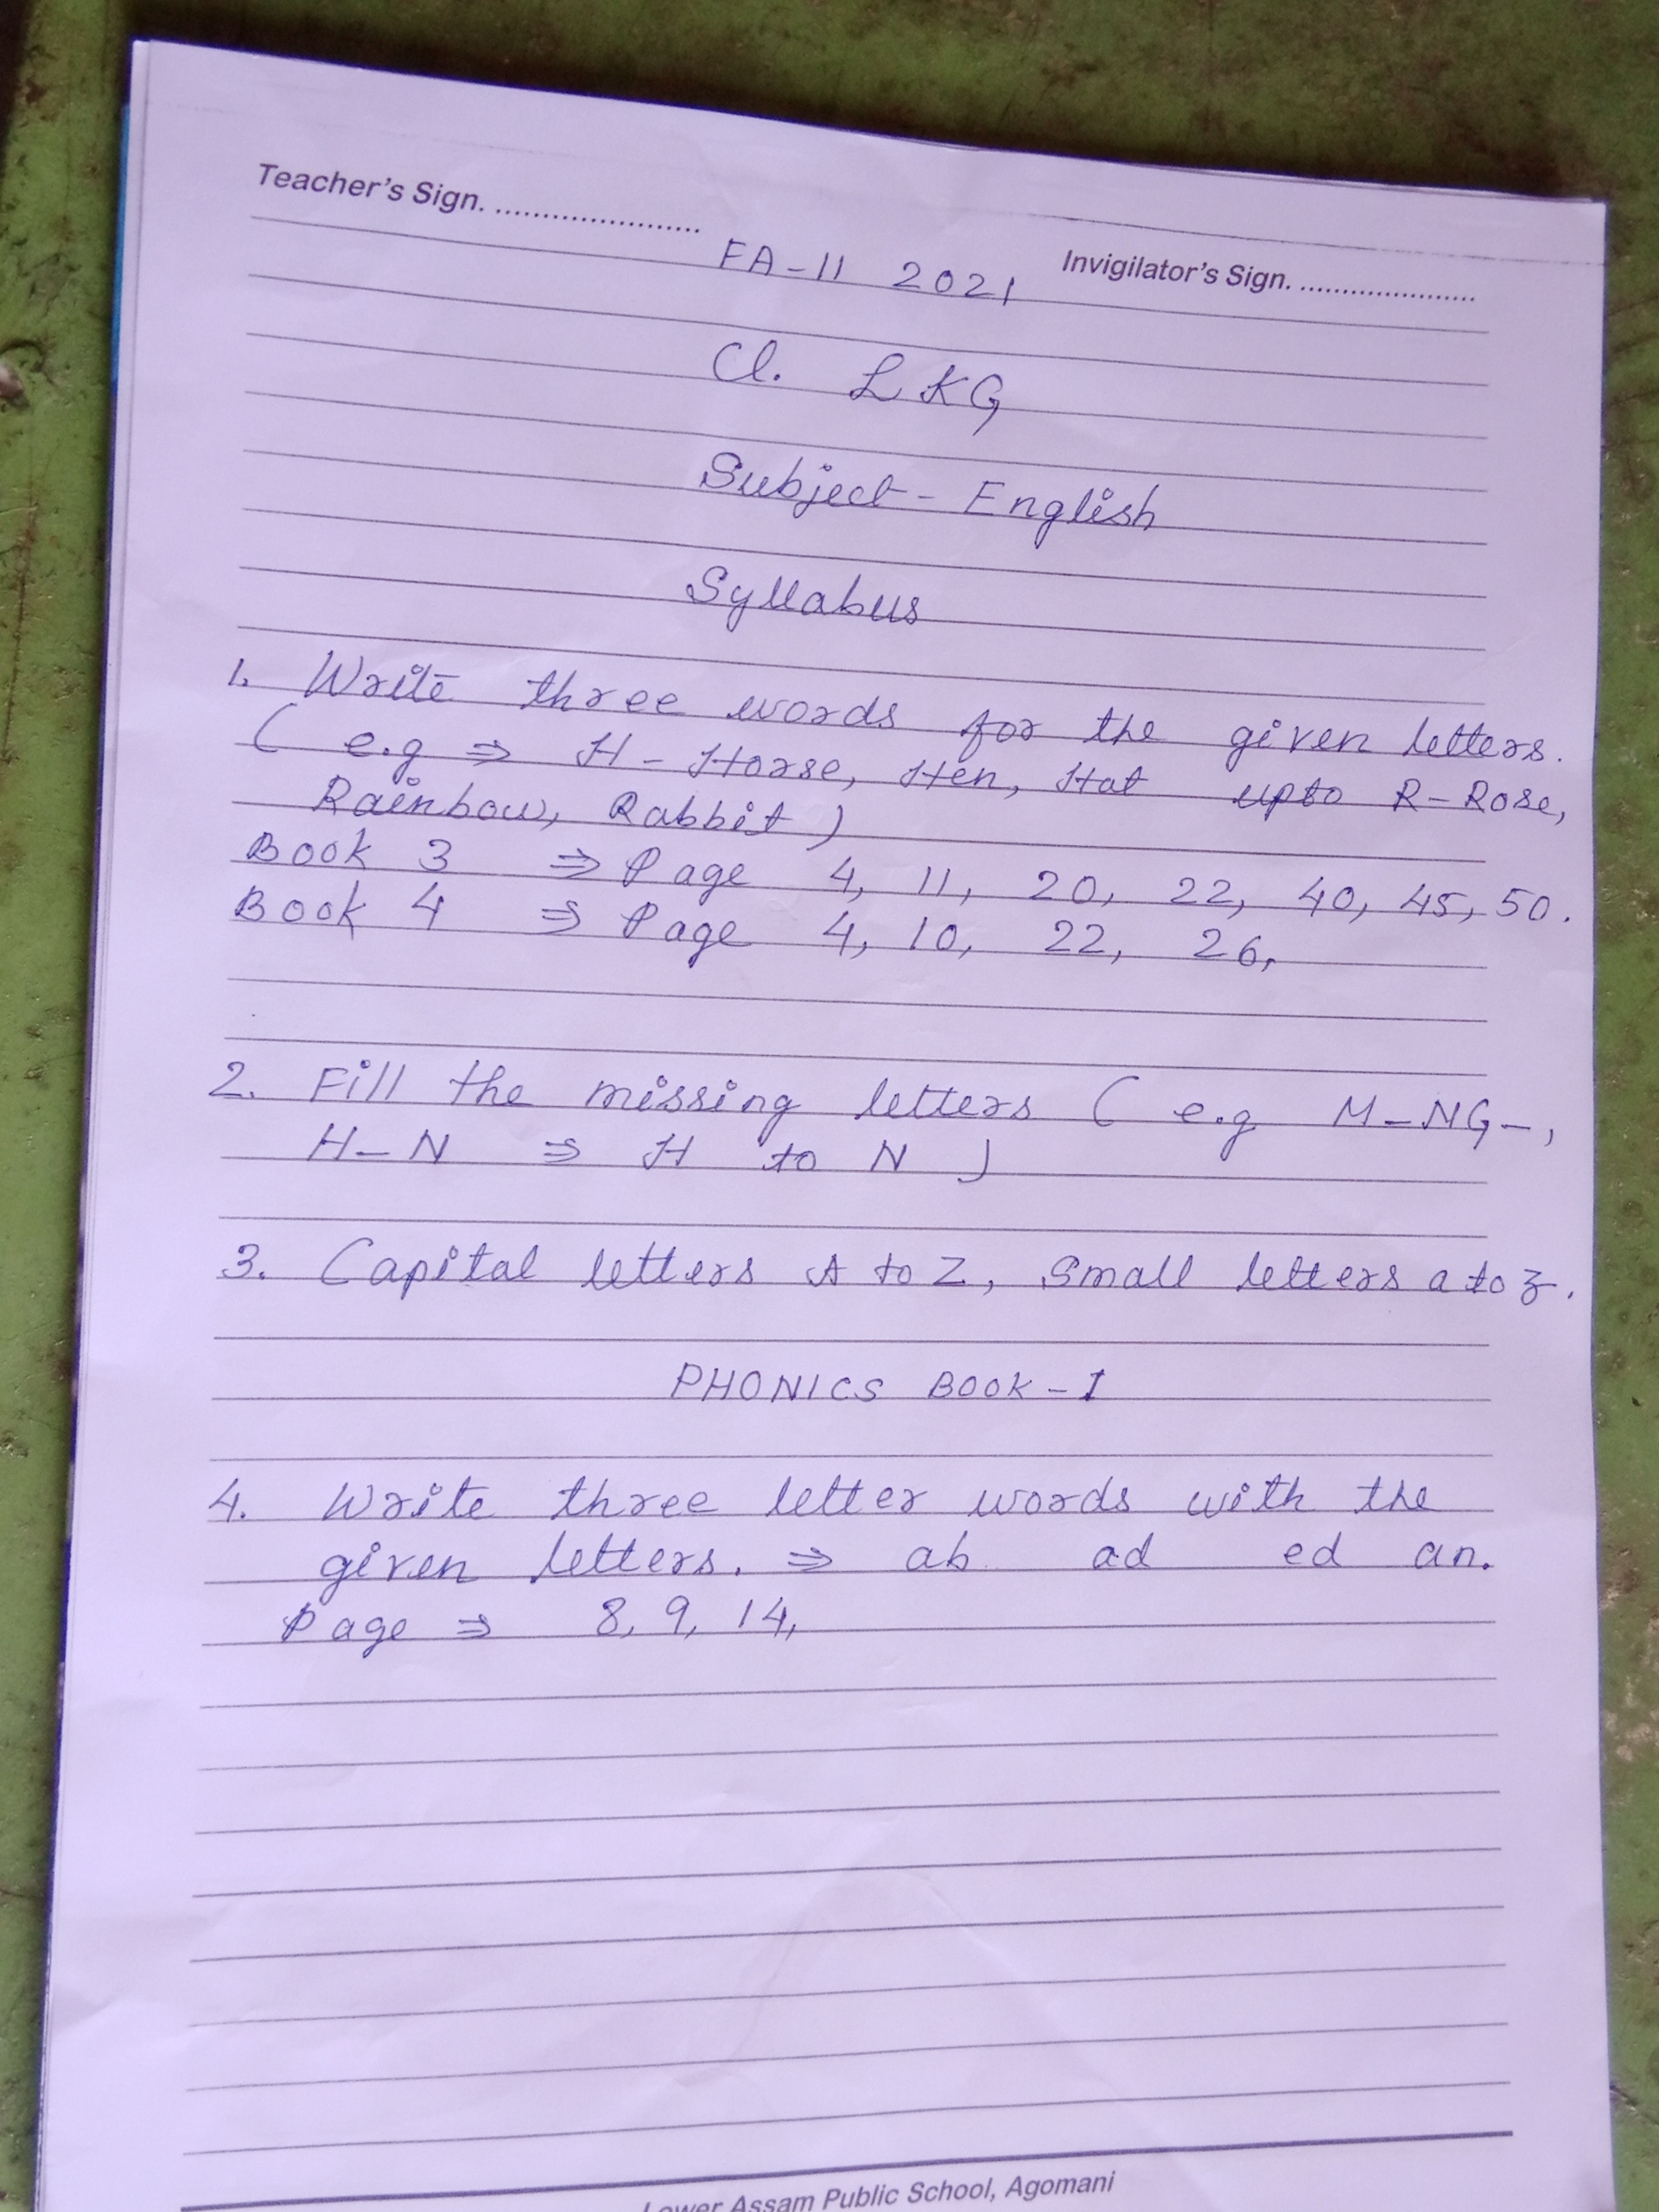 Teacher's Sign. ........................
Invigilator's Sign. .....................
FA-II 2021
Cl. LKG
Subject - English
Syllabus
1. Write three words for the given letters.
( e.g ⇒ H - Horse, Hen, Hat upto R - Rose,
Rainbow, Rabbit )
Book 3 ⇒ Page 4, 11, 20, 22, 40, 45, 50.
Book 4 ⇒ Page 4, 10, 22, 26,
2. Fill the missing letters ( e.g M_NG_,
H_N ⇒ H to N )
3. Capital letters A to Z, Small letters a to z.
PHONICS BOOK - I
4. Write three letter words with the
given letters. ⇒ ab ad ed an.
Page ⇒ 8, 9, 14,
Lower Assam Public School, Agomani